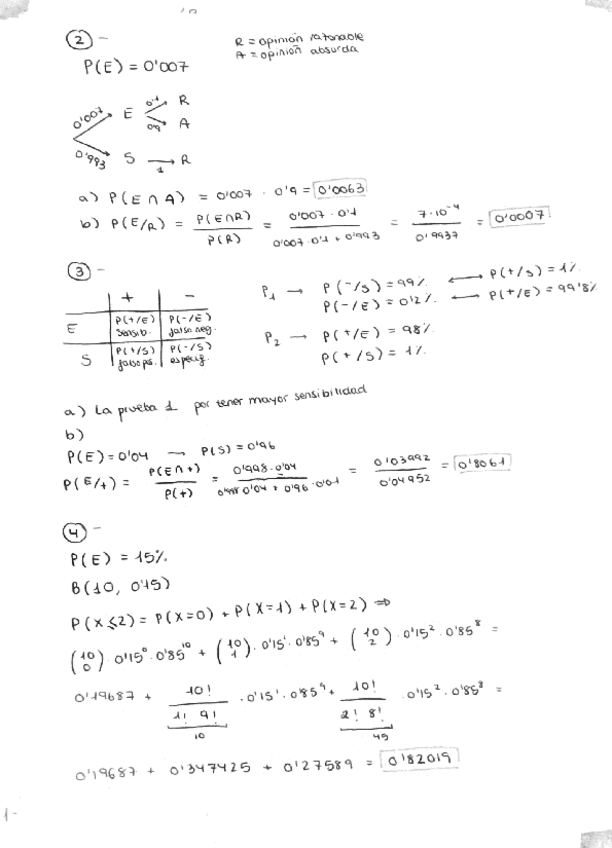 ② -
R = opinión razonable
A = opinión absurda
P(E) = 0'007
0'007 E 0'1 R
0'9 A
0'993 S 1 R
a) P(E ∩ A) = 0'007 · 0'9 = 0'0063
b) P(E/R) = P(E∩R) / P(R) = 0'007 · 0'1 / 0'007·0'1 + 0'993 = 7·10⁻⁴ / 0'9937 = 0'0007
③ -
+ -
E P(+/E) sensib. P(-/E) falso neg.
S P(+/S) falso pos. P(-/S) especif.
P₁ → P(-/S) = 99% ⟷ P(+/S) = 1%
P(-/E) = 0'2% ⟷ P(+/E) = 99'8%
P₂ → P(+/E) = 98%
P(+/S) = 1%
a) La prueba 1 por tener mayor sensibilidad
b)
P(E) = 0'04 → P(S) = 0'96
P(E/+) = P(E∩+) / P(+) = 0'998·0'04 / 0'998·0'04 + 0'96·0'01 = 0'03992 / 0'04952 = 0'8061
④ -
P(E) = 15%
B(10, 0'15)
P(X≤2) = P(X=0) + P(X=1) + P(X=2) ⇒
(10 0) · 0'15⁰ · 0'85¹⁰ + (10 1) · 0'15¹ · 0'85⁹ + (10 2) · 0'15² · 0'85⁸ =
0'19687 + 10! / 1! 9! · 0'15¹ · 0'85⁹ + 10! / 2! 8! · 0'15² · 0'85⁸ =
10 45
0'19687 + 0'347425 + 0'27589 = 0'82019